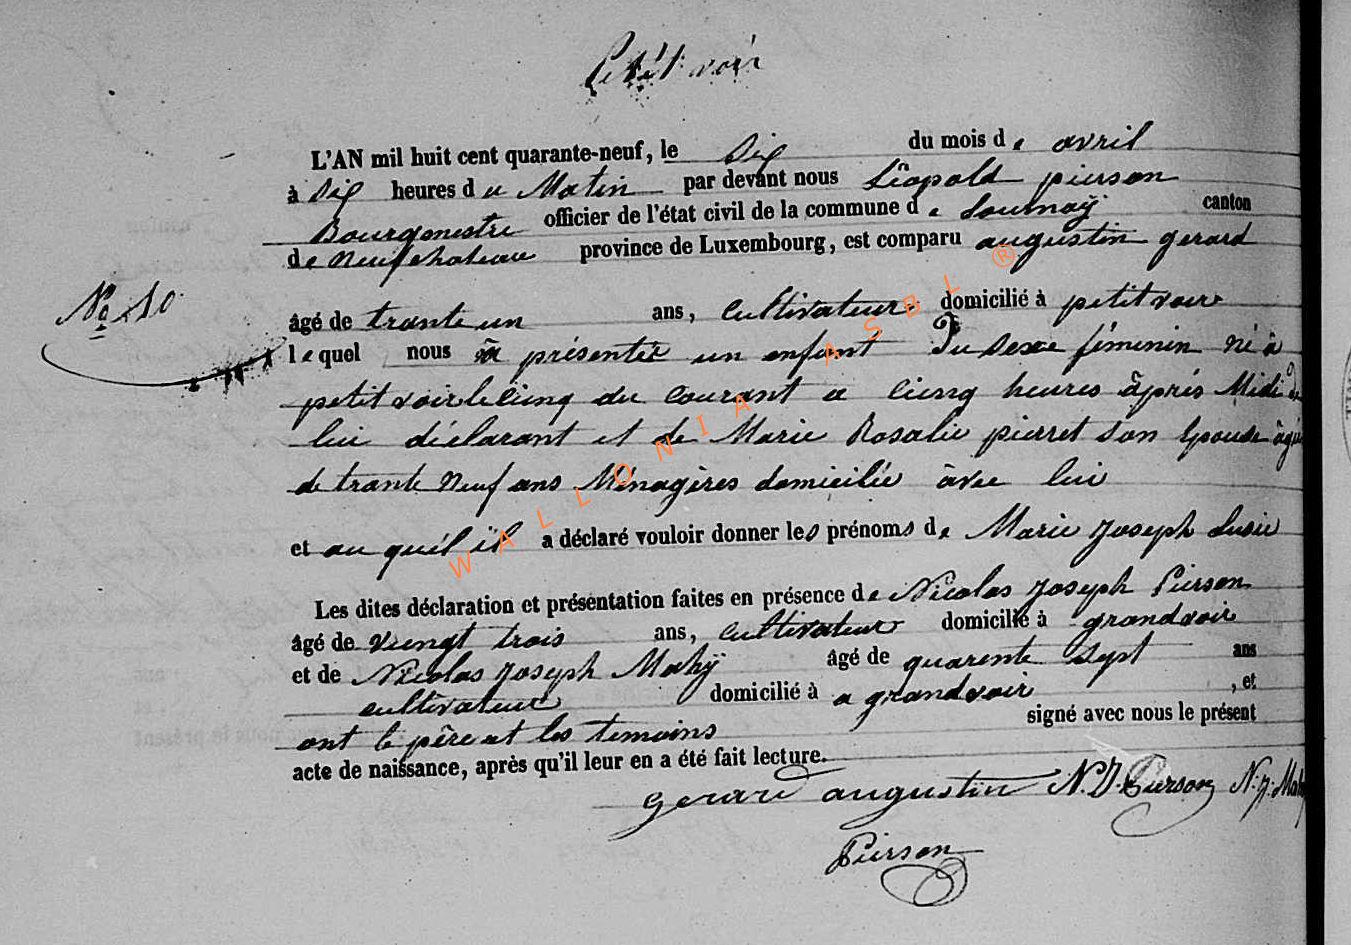 Petit voir
L'AN mil huit cent quarante-neuf, le Six du mois de avril
à Six heures du Matin par devant nous Léopold pierson
Bourgmestre officier de l'état civil de la commune de tournaÿ canton
de neufchateau province de Luxembourg, est comparu augustin gerard
No 10
âgé de trante un ans, cultivateur domicilié à petitvoire
lequel nous à présentée un enfant Du sexe féminin né à
petitvoir le cinq du courant a cinq heures àprés Midi de
lui déclarant et de Marie Rosalie pierret son Epouse àgée
de trante neuf ans Ménagères domiciliée àvec lui
et au quél il a déclaré vouloir donner les prénoms de Marie Joseph Lusie
Les dites déclaration et présentation faites en présence de Nicolas Joseph Pierson
âgé de vengt trois ans, cultivateur domicilié à grandvoir
et de Nicolas Joseph Mahÿ âgé de quarente sept ans
cultivateur domicilié à a grandvoir, et
ont le père et les temoins signé avec nous le présent
acte de naissance, après qu'il leur en a été fait lecture.
gerard augustin N.J. Pierson N.J. Mahy
Pierson
WALLONIA ASBL ®